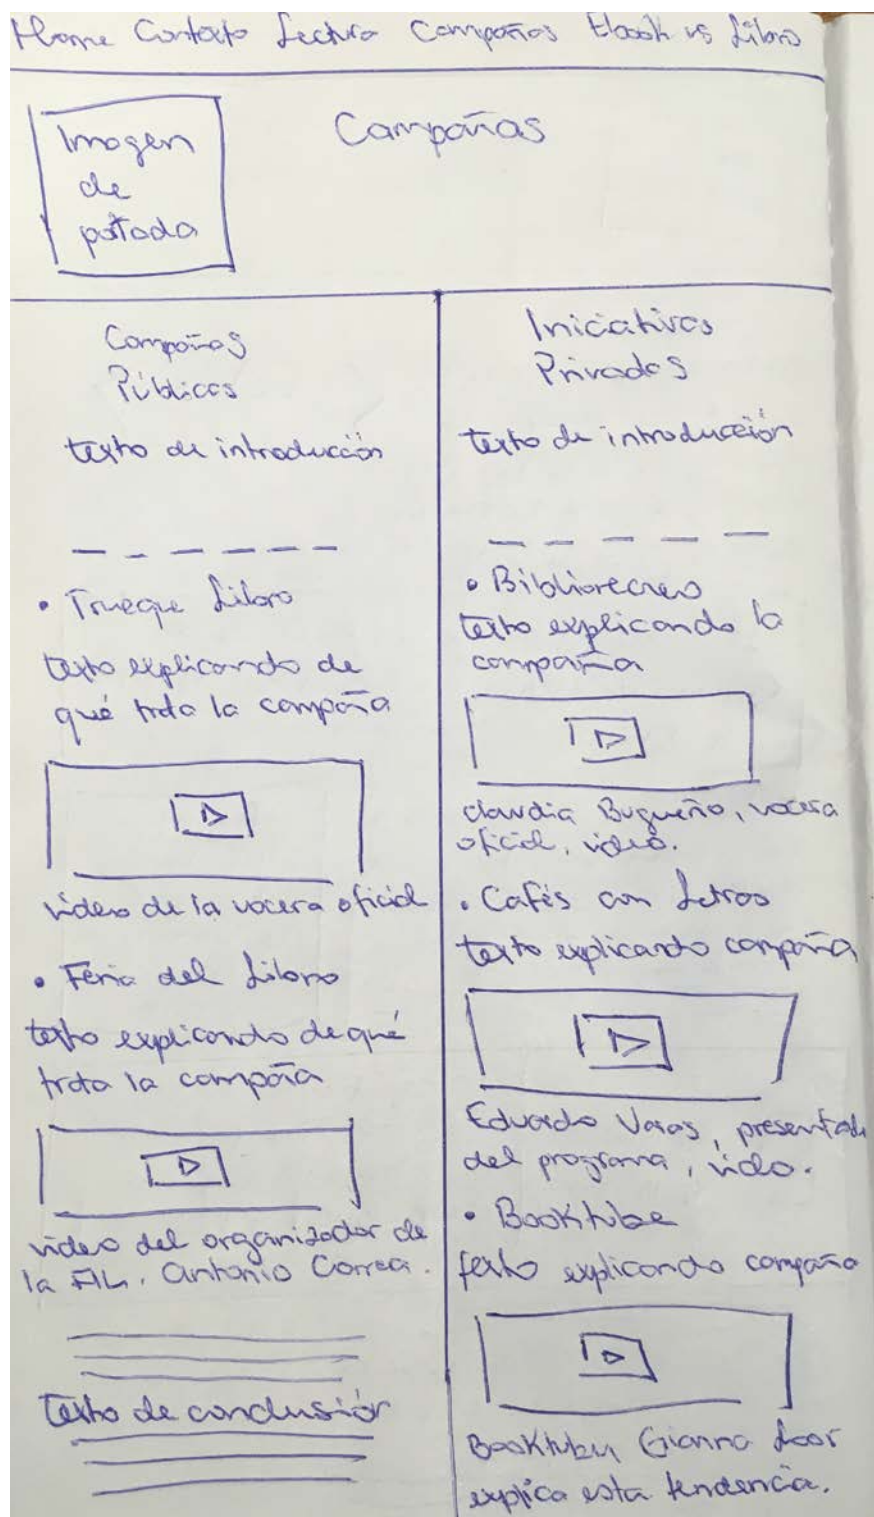 Home Contexto Lectura Campañas Ebook vs Libro
Campañas
Imagen
de
potada
Campañas
Públicas
texto de introducción
• Trueque Libro
texto explicando de
qué trata la campaña
video de la vocera oficial
• Feria del Libro
texto explicando de qué
trata la campaña
video del organizador de
la FIL. Antonio Correa.
Texto de conclusión
Iniciativas
Privadas
texto de introducción
• Bibliorecreo
texto explicando la
campaña
Claudia Bugueño, vocera
oficial, video.
• Cafés con Letras
texto explicando campaña
Eduardo Varas, presentad
del programa, video.
• Booktube
texto explicando campaña
Booktuber Gianna Loor
explica esta tendencia.